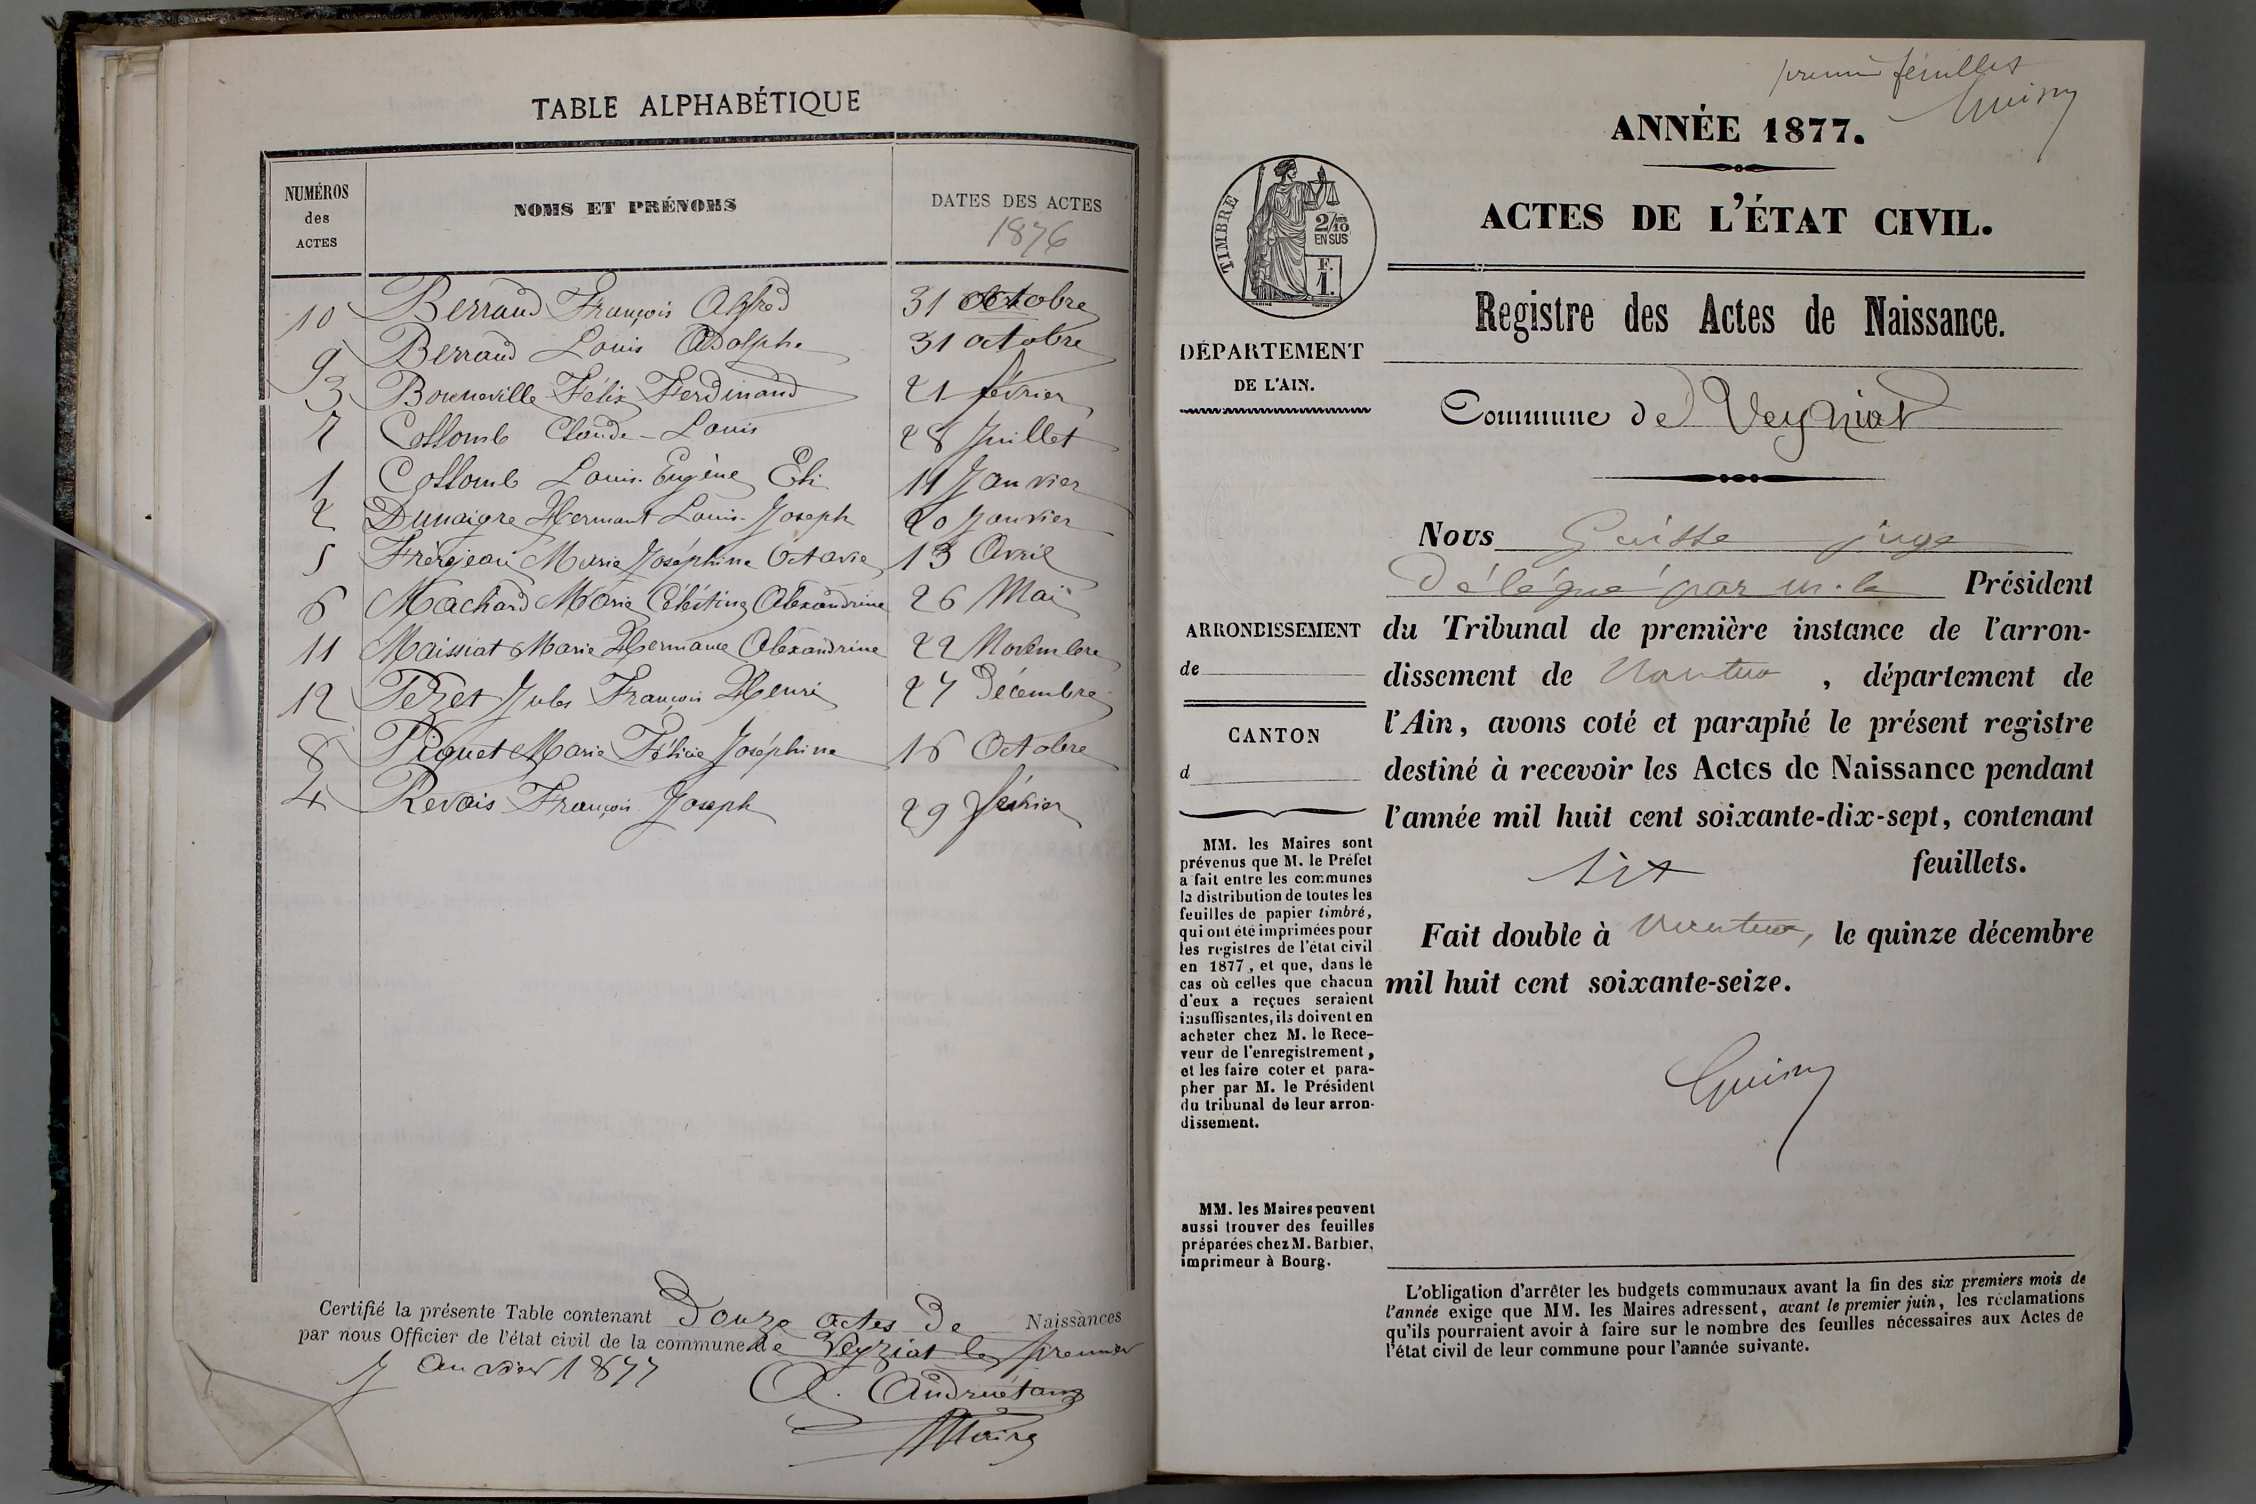 TABLE ALPHABÉTIQUE
NUMÉROS
des
ACTES
NOMS ET PRÉNOMS
DATES DES ACTES
1876
10 Berraud François Alfred 31 Octobre
9 Berraud Louis Adolphe 31 octobre
3 Bonneville Félix Ferdinand 21 février
7 Collomb Claude-Louis 28 Juillet
1 Collomb Louis Eugène Eli 11 Janvier
2 Dumaigre Hermant Louis Joseph 20 Janvier
5 Frèrejean Marie Joséphine Octavie 13 Avril
6 Machard Marie Célestine Alexandrine 26 Mai
11 Maissiat Marie Hermance Alexandrine 22 Novembre
12 Pezet Jules François Henri 27 Décembre
8 Piquet Marie Félicie Joséphine 16 Octobre
4 Revois François Joseph 29 février
Certifié la présente Table contenant Douze actes De Naissances
par nous Officier de l'état civil de la commune de Veyziat le premier
Janvier 1877
Maire
premier feuillet
ANNÉE 1877.
TIMBRE
2/10
EN SUS
F.
1.
ACTES DE L'ÉTAT CIVIL.
Registre des Actes de Naissance.
DÉPARTEMENT
DE L'AIN.
Commune de Veyziat
Nous juge
délégué par m. le Président
du Tribunal de première instance de l'arron-
dissement de Nantua, département de
l'Ain, avons coté et paraphé le présent registre
destiné à recevoir les Actes de Naissance pendant
l'année mil huit cent soixante-dix-sept, contenant
six feuillets.
Fait double à Nantua, le quinze décembre
mil huit cent soixante-seize.
ARRONDISSEMENT
de
CANTON
d
MM. les Maires sont
prévenus que M. le Préfet
a fait entre les communes
la distribution de toutes les
feuilles de papier timbré,
qui ont été imprimées pour
les registres de l'état civil
en 1877, et que, dans le
cas où celles que chacun
d'eux a reçues seraient
insuffisantes, ils doivent en
acheter chez M. le Rece-
veur de l'enregistrement,
et les faire coter et para-
pher par M. le Président
du tribunal de leur arron-
dissement.
MM. les Maires peuvent
aussi trouver des feuilles
préparées chez M. Barbier,
imprimeur à Bourg.
L'obligation d'arrêter les budgets communaux avant la fin des six premiers mois de
l'année exige que MM. les Maires adressent, avant le premier juin, les réclamations
qu'ils pourraient avoir à faire sur le nombre des feuilles nécessaires aux Actes de
l'état civil de leur commune pour l'année suivante.